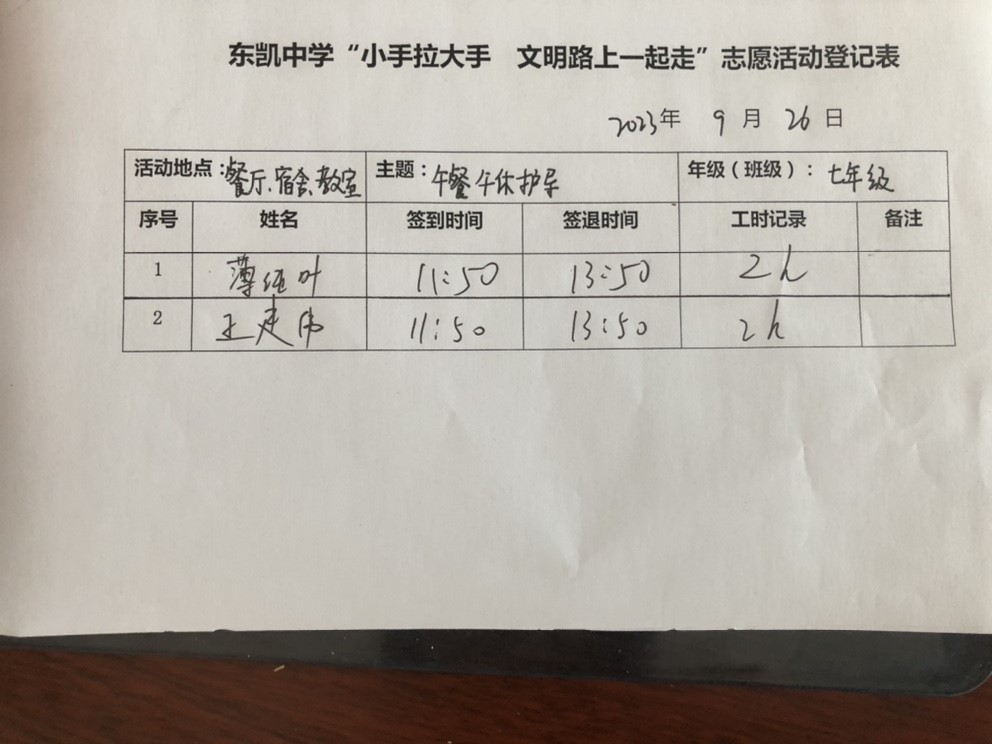 东凯中学“小手拉大手 文明路上一起走”志愿活动登记表
2023年 9 月 26 日
活动地点:餐厅、宿舍、教室 主题:午餐午休护导 年级(班级):七年级
序号 姓名 签到时间 签退时间 工时记录 备注
1 薄红叶 11:50 13:50 2h
2 王建伟 11:50 13:50 2h